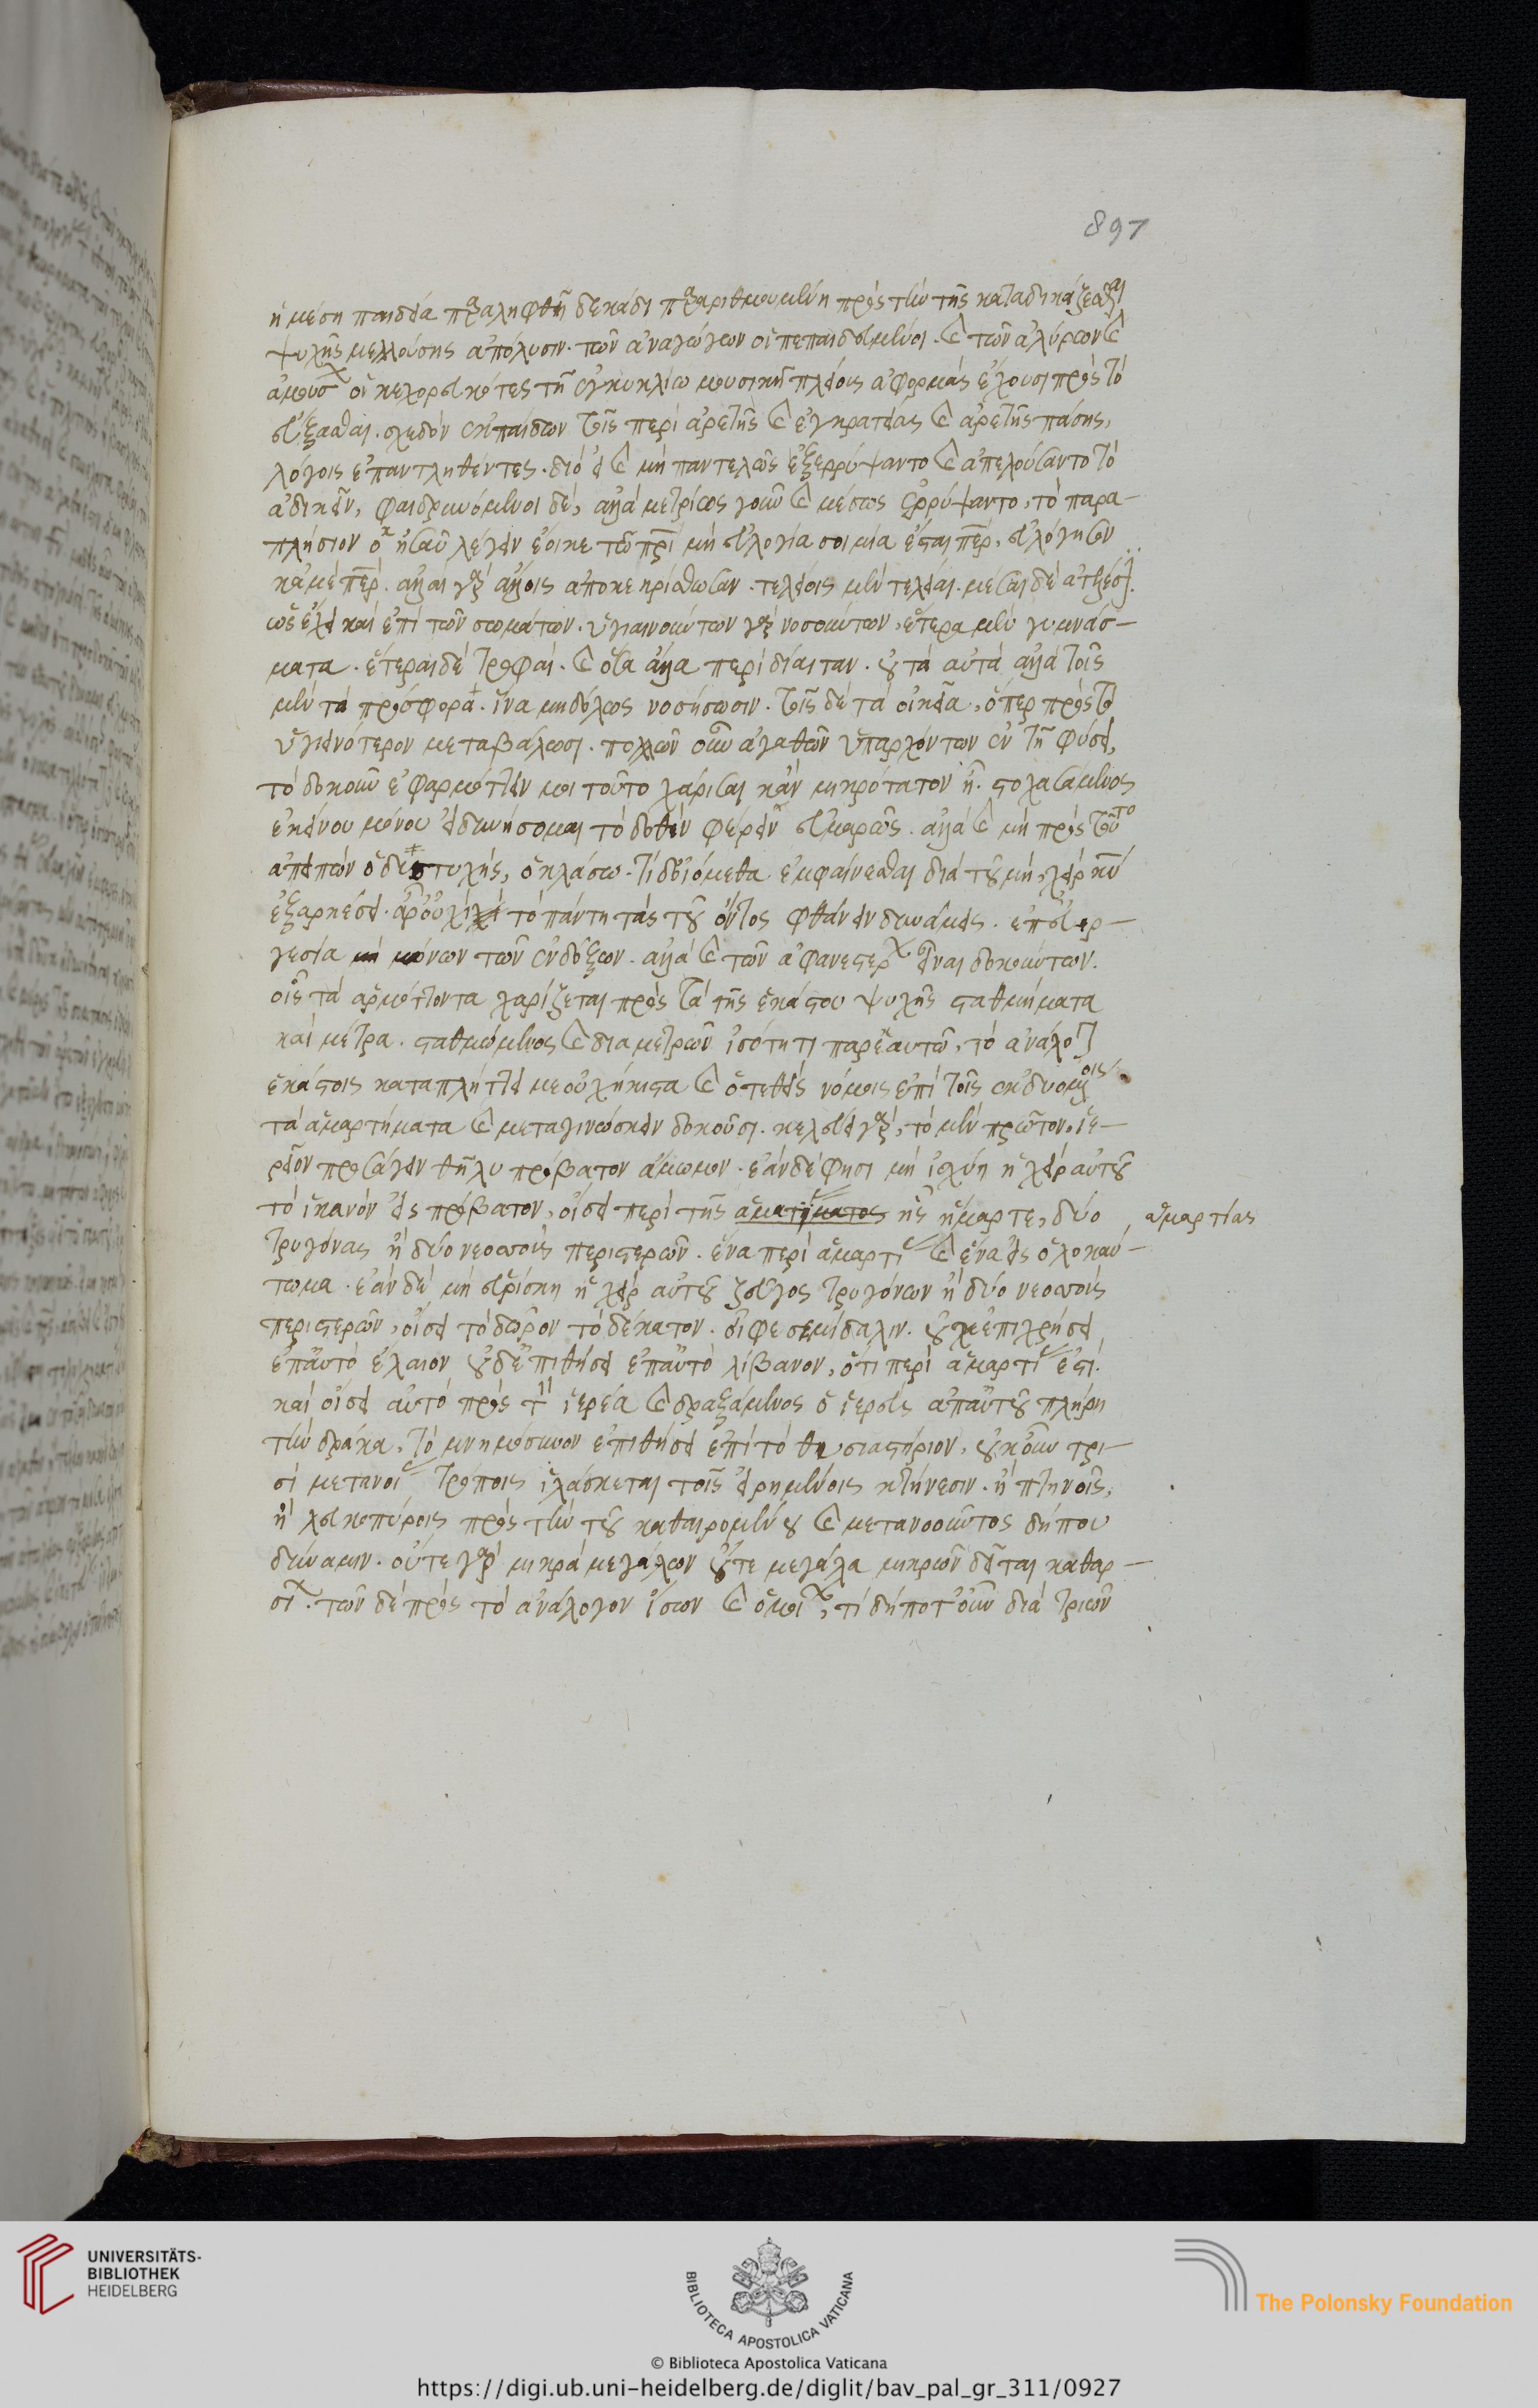 897
ἡ μέση παιδεία παραληφθῆ δεκάδι παραριθμουμένη πρὸς τὴν τῆς καταδικάζεσθαι
ψυχῆς μελλούσης ἀπόλυσιν. τῶν ἀναγώγων οἱ πεπαιδευμένοι. καὶ τῶν ἀχόρων καὶ
ἀμούσων οἱ κεχορευκότες τῇ ἐγκυκλίω μουσικῇ πλείους ἀφορμὰς ἔχουσι πρὸς τὸ
εὔξασθαι. σχεδὸν ἐκ παίδων τοῖς περὶ ἀρετῆς καὶ ἐγκρατείας καὶ ἀρετῆς πάσης,
λόγοις ἐπαντληθέντες. διὸ εἰ καὶ μὴ παντελῶς ἐξερρύψαντο καὶ ἀπελούσαντο τὸ
ἀδικεῖν, φαιδρυνόμενοι δὲ, ἀλλὰ μετρίως γοῦν καὶ μέσως ἐρρύψαντο, τὸ παρα-
πλήσιον καὶ ἠσαῦ λέγειν ἔοικε τῶ πρὶ μὴ εὐλογία σοι μία ἔσται περ, εὐλόγησον
κἀμὲ περ. ἄλλαι γὰρ ἄλλοις ἀποκεκρίσθωσαν. τελείοις μὲν τέλειαι. μέσαι δὲ ἀτελέσι.
ὡς ἔχει καὶ ἐπὶ τῶν σωμάτων. ὑγιαινούντων γὰρ νοσούντων, ἕτερα μὲν γυμνάσ-
ματα. ἕτεραι δὲ τροφαὶ. καὶ ὅσα ἄλλα περὶ δίαιταν. οὐ τὰ αὐτὰ ἀλλὰ τοῖς
μὲν τὰ πρόσφορα. ἵνα μηδόλως νοσήσωσιν. τοῖς δὲ τὰ οἰκεῖα, ὅπερ πρὸς τὸ
ὑγιεινότερον μεταβάλωσι. πολλῶν οὖν ἀγαθῶν ὑπαρχόντων ἐν τῇ φύσει,
τὸ δοκοῦν ἐφαρμόττειν μοι τοῦτο χάρισαι κἂν μικρότατον ἦ. στοχασάμενος
ἐκείνου μόνου εἰ δυνήσομαι τὸ δοθὲν φέρειν εὐμαρῶς. ἀλλὰ καὶ μὴ πρὸς τοῦτο
ἀπειπὼν ὁ δυστυχὴς, ὀκλάσω. τί δὲ οἰόμεθα ἐμφαίνεσθαι διὰ τοῦ μὴ, χεὶρ κυ
ἐξαρκέσει. ἆρ' οὐχὶ τὸ πάντη τὰς τοῦ ὄντος φθάνειν δυνάμεις. ἐπ' εὐερ-
γεσία μὴ μόνων τῶν ἐνδόξων. ἀλλὰ καὶ τῶν ἀφανεστέρων εἶναι δοκούντων.
οἷς τὰ ἁρμόττοντα χαρίζεται πρὸς τὰ τῆς ἑκάστου ψυχῆς σταθμήματα
καὶ μέτρα. σταθμώμενος καὶ διαμετρῶν ἰσότητι παρ' ἑαυτῶ, τὸ ἀνάλογον
ἑκάστοις καταπλήττει με οὐχ ἥκιστα καὶ ὁ τεθεὶς νόμος ἐπὶ τοῖς ἐκδυομένοις
τὰ ἁμαρτήματα καὶ μεταγινώσκειν δοκοῦσι. κελεύει γὰρ, τὸ μὲν πρῶτον, ἱε-
ρεῖον προσάγειν θῆλυ πρόβατον ἄμωμον. ἐὰν δὲ φησι μὴ ἰσχύη ἡ χεὶρ αὐτοῦ
τὸ ἱκανὸν εἰς πρόβατον, οἴσει περὶ τῆς ἁματήματος ἧς ἥμαρτε, δύο , ἁμαρτίας
τρυγόνας ἢ δύο νεοσσοὺς περιστερῶν. ἕνα περὶ ἁμαρτίας καὶ ἕνα εἰς ὁλοκαύ-
τωμα. ἐὰν δὲ μὴ εὑρίσκη ἡ χεὶρ αὐτοῦ ζεῦγος τρυγόνων ἢ δύο νεοσσοὺς
περιστερῶν, οἴσει τὸ δῶρον τὸ δέκατον. οἰφὶ σεμίδαλιν. οὐκ ἐπιχρήσει
ἐπ' αὐτὸ ἔλαιον οὐδ' ἐπιθήσει ἐπ' αὐτὸ λίβανον, ὅτι περὶ ἁμαρτίας ἐστί.
καὶ οἴσει αὐτὸ πρὸς τὸν ἱερέα καὶ δραξάμενος ὁ ἱερεὺς ἀπ' αὐτοῦ πλήρη
τὴν δράκα, τὸ μνημόσυνον ἐπιθήσει ἐπὶ τὸ θυσιαστήριον, οὐκοῦν τρι-
σὶ μετανοίας τρόποις ἱλάσκεται τοῖς εἰρημένοις κτήνεσιν. ἢ πτηνοῖς,
ἢ λευκοπύροις πρὸς τὴν τοῦ καθαιρομένου καὶ μετανοοῦντος δήπου
δύναμιν. οὔτε γὰρ μικρὰ μεγάλων οὔτε μεγάλα μικρῶν δεῖται καθαρ-
σίων. τῶν δὲ πρὸς τὸ ἀνάλογον ἴσων καὶ ὁμοίων, τί δήποτ' οὖν διὰ τριῶν
UNIVERSITÄTS-
BIBLIOTHEK
HEIDELBERG
BIBLIOTECA APOSTOLICA VATICANA
The Polonsky Foundation
© Biblioteca Apostolica Vaticana
https://digi.ub.uni-heidelberg.de/diglit/bav_pal_gr_311/0927